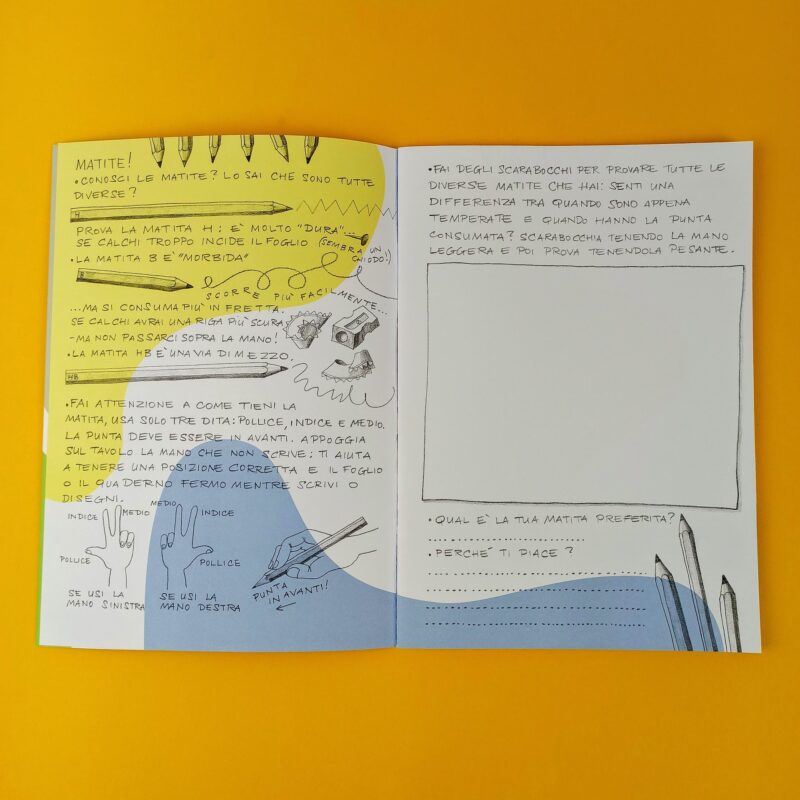 MATITE!
• CONOSCI LE MATITE? LO SAI CHE SONO TUTTE
DIVERSE?
H
PROVA LA MATITA H: E' MOLTO "DURA"...
SE CALCHI TROPPO INCIDE IL FOGLIO (SEMBRA UN
CHIODO!)
• LA MATITA B E' "MORBIDA"
B
SCORRE PIU' FACILMENTE...
...MA SI CONSUMA PIU' IN FRETTA.
SE CALCHI AVRAI UNA RIGA PIU' SCURA
- MA NON PASSARCI SOPRA LA MANO!
• LA MATITA HB E' UNA VIA DI MEZZO.
HB
• FAI ATTENZIONE A COME TIENI LA
MATITA, USA SOLO TRE DITA: POLLICE, INDICE E MEDIO.
LA PUNTA DEVE ESSERE IN AVANTI. APPOGGIA
SUL TAVOLO LA MANO CHE NON SCRIVE: TI AIUTA
A TENERE UNA POSIZIONE CORRETTA E IL FOGLIO
O IL QUADERNO FERMO MENTRE SCRIVI O
DISEGNI.
INDICE
MEDIO
POLLICE
SE USI LA
MANO SINISTRA
MEDIO
INDICE
POLLICE
SE USI LA
MANO DESTRA
PUNTA
IN AVANTI!
• FAI DEGLI SCARABOCCHI PER PROVARE TUTTE LE
DIVERSE MATITE CHE HAI: SENTI UNA
DIFFERENZA TRA QUANDO SONO APPENA
TEMPERATE E QUANDO HANNO LA PUNTA
CONSUMATA? SCARABOCCHIA TENENDO LA MANO
LEGGERA E POI PROVA TENENDOLA PESANTE.
• QUAL E' LA TUA MATITA PREFERITA?
• PERCHE' TI PIACE?